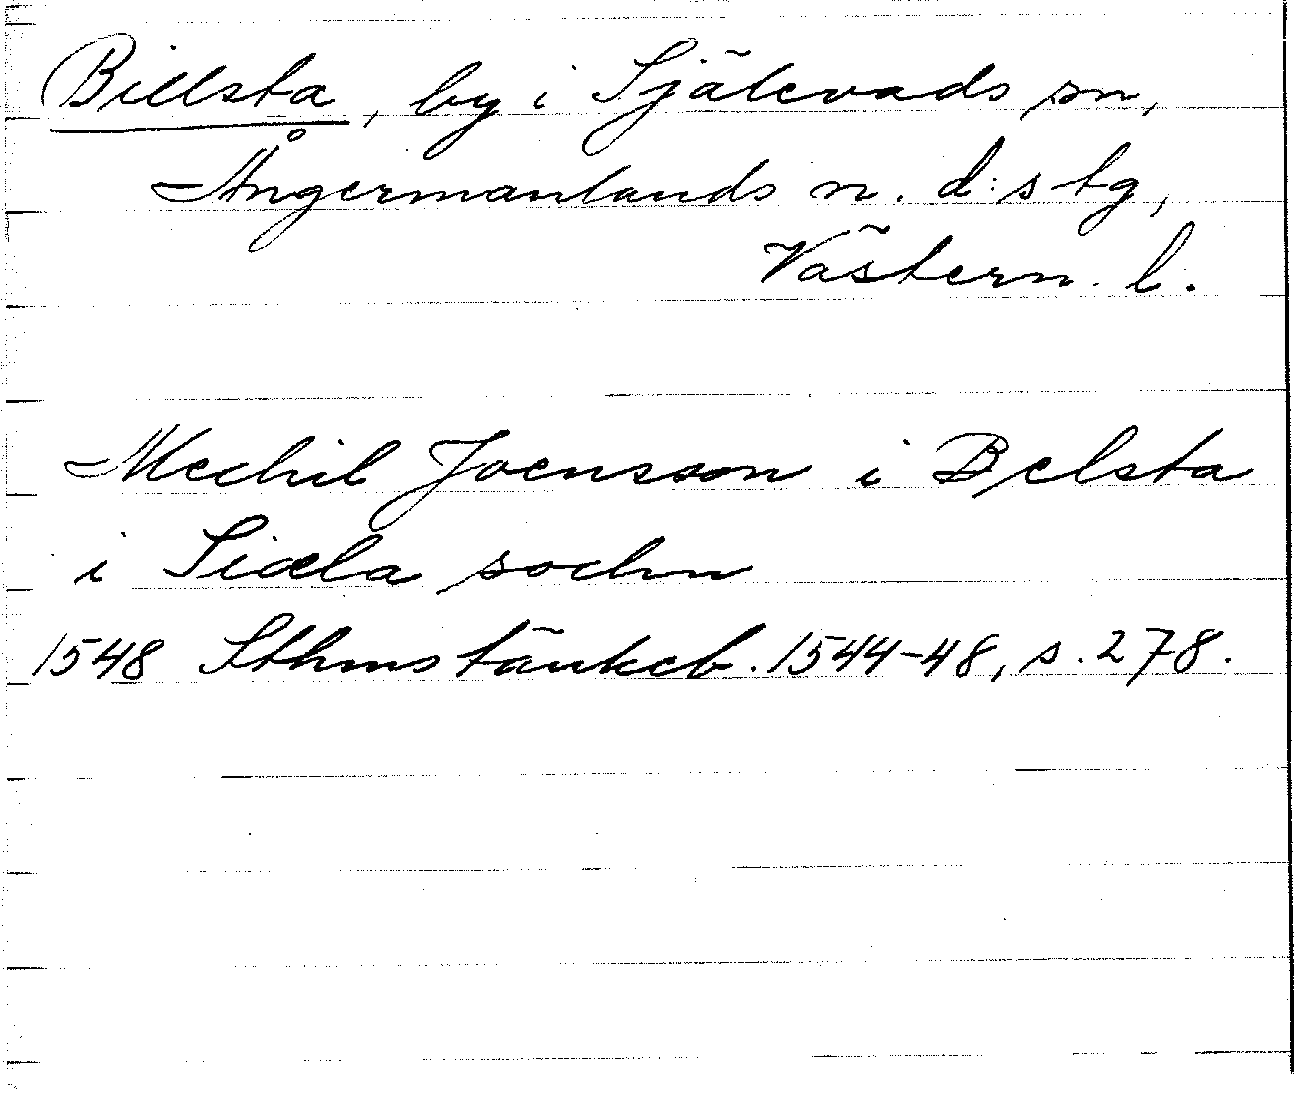 Billsta, by i Själevads sn,
Ångermanlands n. d:s tg,
Västern. l.
Mechil Joensson i Belsta
i Siæla sochn
1548 Sthms tänkeb. 1544-48, s. 278.